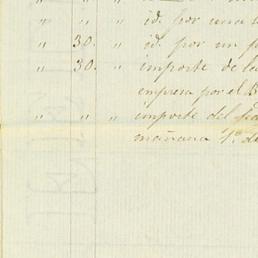 " " " id. por una
" 30. " id. por un
" 30. " importe de
empresa por el B
" " " importe del
mañana 1º de